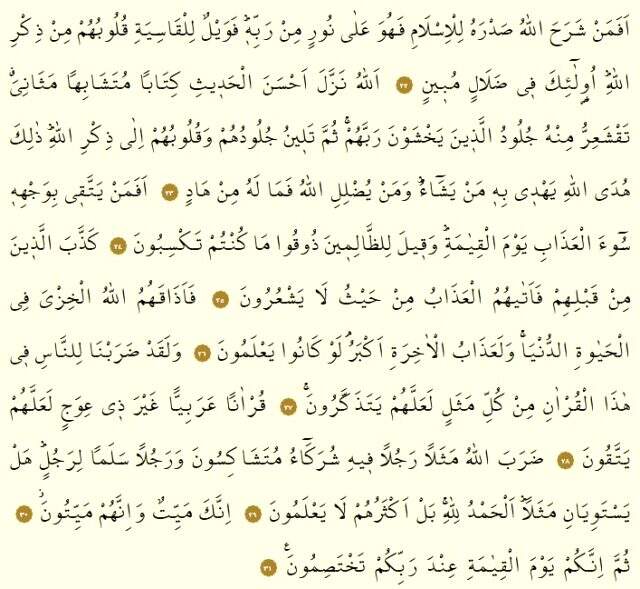 اَفَمَنْ شَرَحَ اللّٰهُ صَدْرَهُ لِلْاِسْلَامِ فَهُوَ عَلٰى نُورٍ مِنْ رَبِّهٖۜ فَوَيْلٌ لِلْقَاسِيَةِ قُلُوبُهُمْ مِنْ ذِكْرِ
اللّٰهِۜ اُو۬لٰٓئِكَ ف۪ي ضَلَالٍ مُب۪ينٍ ٢٢ اَللّٰهُ نَزَّلَ اَحْسَنَ الْحَد۪يثِ كِتَابًا مُتَشَابِهًا مَثَانِيَۗ
تَقْشَعِرُّ مِنْهُ جُلُودُ الَّذ۪ينَ يَخْشَوْنَ رَبَّهُمْۚ ثُمَّ تَل۪ينُ جُلُودُهُمْ وَقُلُوبُهُمْ اِلٰى ذِكْرِ اللّٰهِۜ ذٰلِكَ
هُدَى اللّٰهِ يَهْد۪ي بِه۪ مَنْ يَشَٓاءُۜ وَمَنْ يُضْلِلِ اللّٰهُ فَمَا لَهُ مِنْ هَادٍ ٢٣ اَفَمَنْ يَتَّق۪ي بِوَجْهِه۪
سُٓوءَ الْعَذَابِ يَوْمَ الْقِيٰمَةِۜ وَق۪يلَ لِلظَّالِم۪ينَ ذُوقُوا مَا كُنْتُمْ تَكْسِبُونَ ٢٤ كَذَّبَ الَّذ۪ينَ
مِنْ قَبْلِهِمْ فَاَتٰيهُمُ الْعَذَابُ مِنْ حَيْثُ لَا يَشْعُرُونَ ٢٥ فَاَذَاقَهُمُ اللّٰهُ الْخِزْيَ فِي
الْحَيٰوةِ الدُّنْيَاۚ وَلَعَذَابُ الْاٰخِرَةِ اَكْبَرُۢ لَوْ كَانُوا يَعْلَمُونَ ٢٦ وَلَقَدْ ضَرَبْنَا لِلنَّاسِ ف۪ي
هٰذَا الْقُرْاٰنِ مِنْ كُلِّ مَثَلٍ لَعَلَّهُمْ يَتَذَكَّرُونَۚ ٢٧ قُرْاٰنًا عَرَبِيًّا غَيْرَ ذ۪ي عِوَجٍ لَعَلَّهُمْ
يَتَّقُونَ ٢٨ ضَرَبَ اللّٰهُ مَثَلًا رَجُلًا ف۪يهِ شُرَكَٓاءُ مُتَشَاكِسُونَ وَرَجُلًا سَلَمًا لِرَجُلٍۜ هَلْ
يَسْتَوِيَانِ مَثَلًاۜ اَلْحَمْدُ لِلّٰهِۚ بَلْ اَكْثَرُهُمْ لَا يَعْلَمُونَ ٢٩ اِنَّكَ مَيِّتٌ وَاِنَّهُمْ مَيِّتُونَۘ ٣٠
ثُمَّ اِنَّكُمْ يَوْمَ الْقِيٰمَةِ عِنْدَ رَبِّكُمْ تَخْتَصِمُونَ۟ ٣١